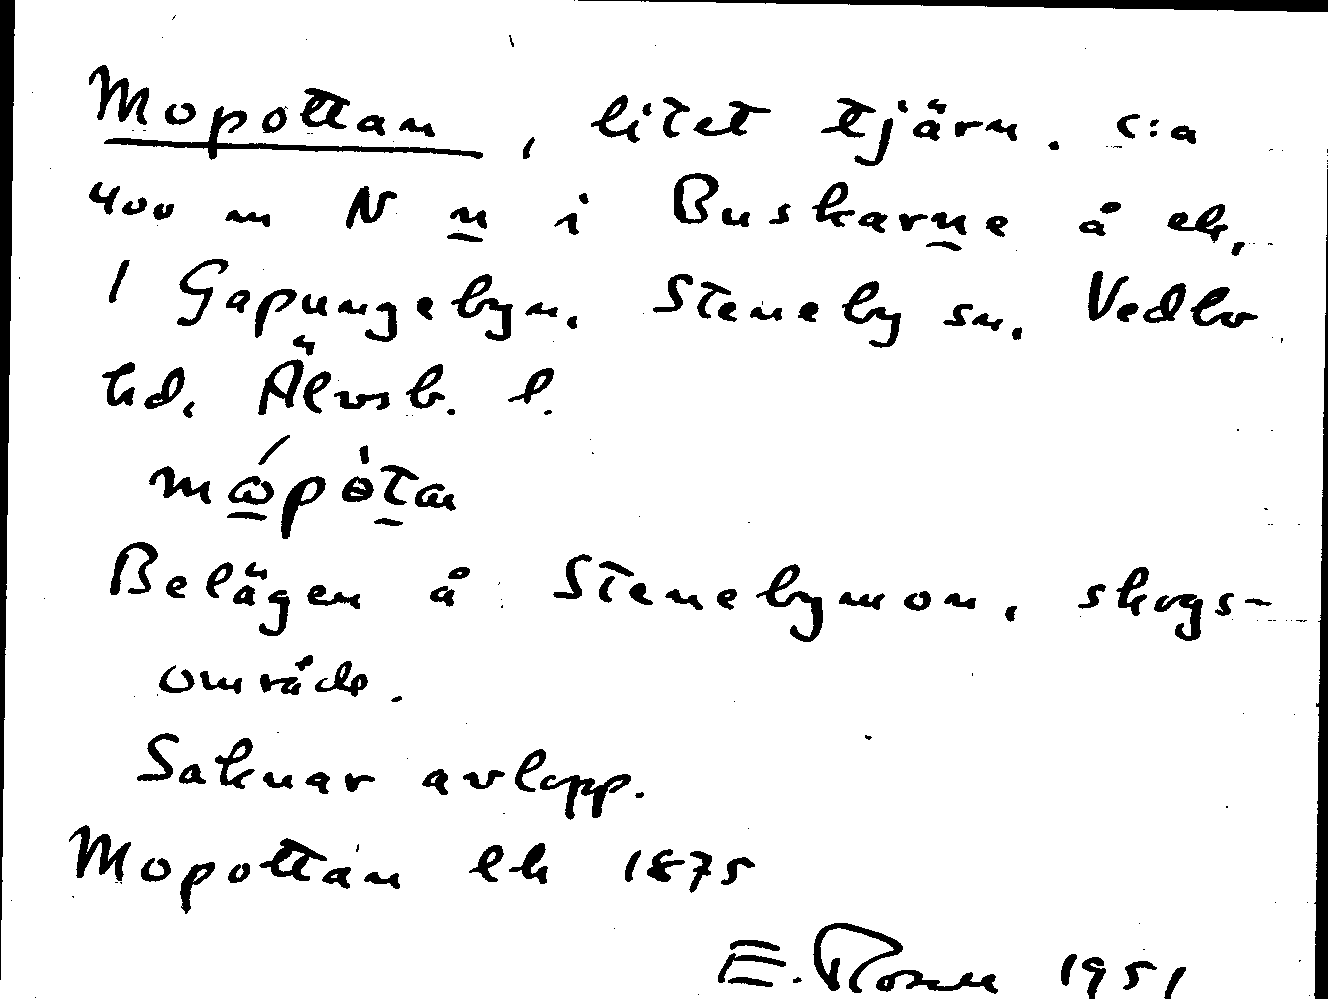 Mopottan, litet tjärn. c:a
400 m N n i Buskarne å ek,
1 Gapungebyn. Steneby sn. Vedbo
hd. Älvsb. l.
Belägen å Stenebymon, skogs-
område.
Saknar avlopp.
Mopottan ek 1875
E. Rosell 1951